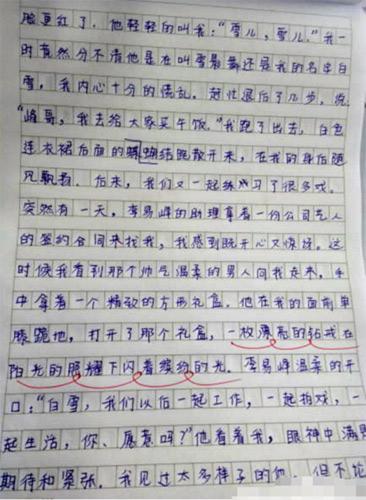 脸更红了。他轻轻的叫我："雪儿，雪儿。"我一
时竟然分不清他是在叫雪景舞还是我的名字白
雪，我内心十分的慌乱。赶忙退后了几步，说，
"峰哥，我去给大家买午饭。"我跑了出去，白色
连衣裙后面的蝴蝶结飘散开来，在我的身后随
风飘着。后来，我们又一起练习了很多戏。
突然有一天，李易峰的助理拿着一份公司艺人
的签约合同来找我，我感到既开心又惊讶。这
时候我看到那个帅气温柔的男人向我走来，手
中拿着一个精致的方形礼盒，他在我的面前单
膝跪地，打开了那个礼盒，一枚漂亮的钻戒在
阳光的照耀下闪着缤纷的光。李易峰温柔的开
口："白雪，我们以后一起工作，一起拍戏，一
起生活，你、愿意吗？"他看着我，眼神中满是
期待和紧张。我见过太多样子的他，但不论